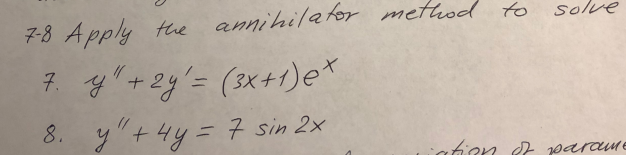 7-8 Apply the annihilator method to solve
7. y'' + 2y' = (3x+1)e^x
8. y'' + 4y = 7 sin 2x
of